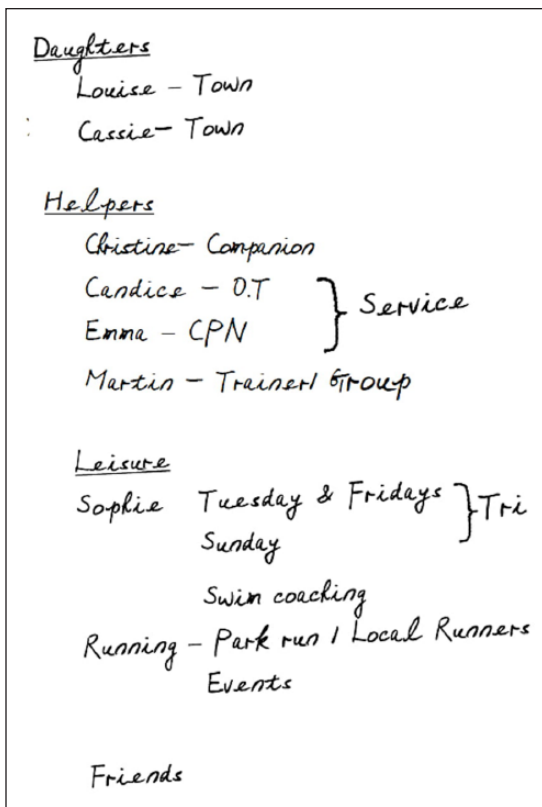 Daughters
Louise - Town
Cassie - Town
Helpers
Christine - Companion
Candice - O.T
Emma - CPN
} Service
Martin - Trainer/ Group
Leisure
Sophie Tuesday & Fridays
Sunday
} Tri
Swim coaching
Running - Park run / Local Runners
Events
Friends